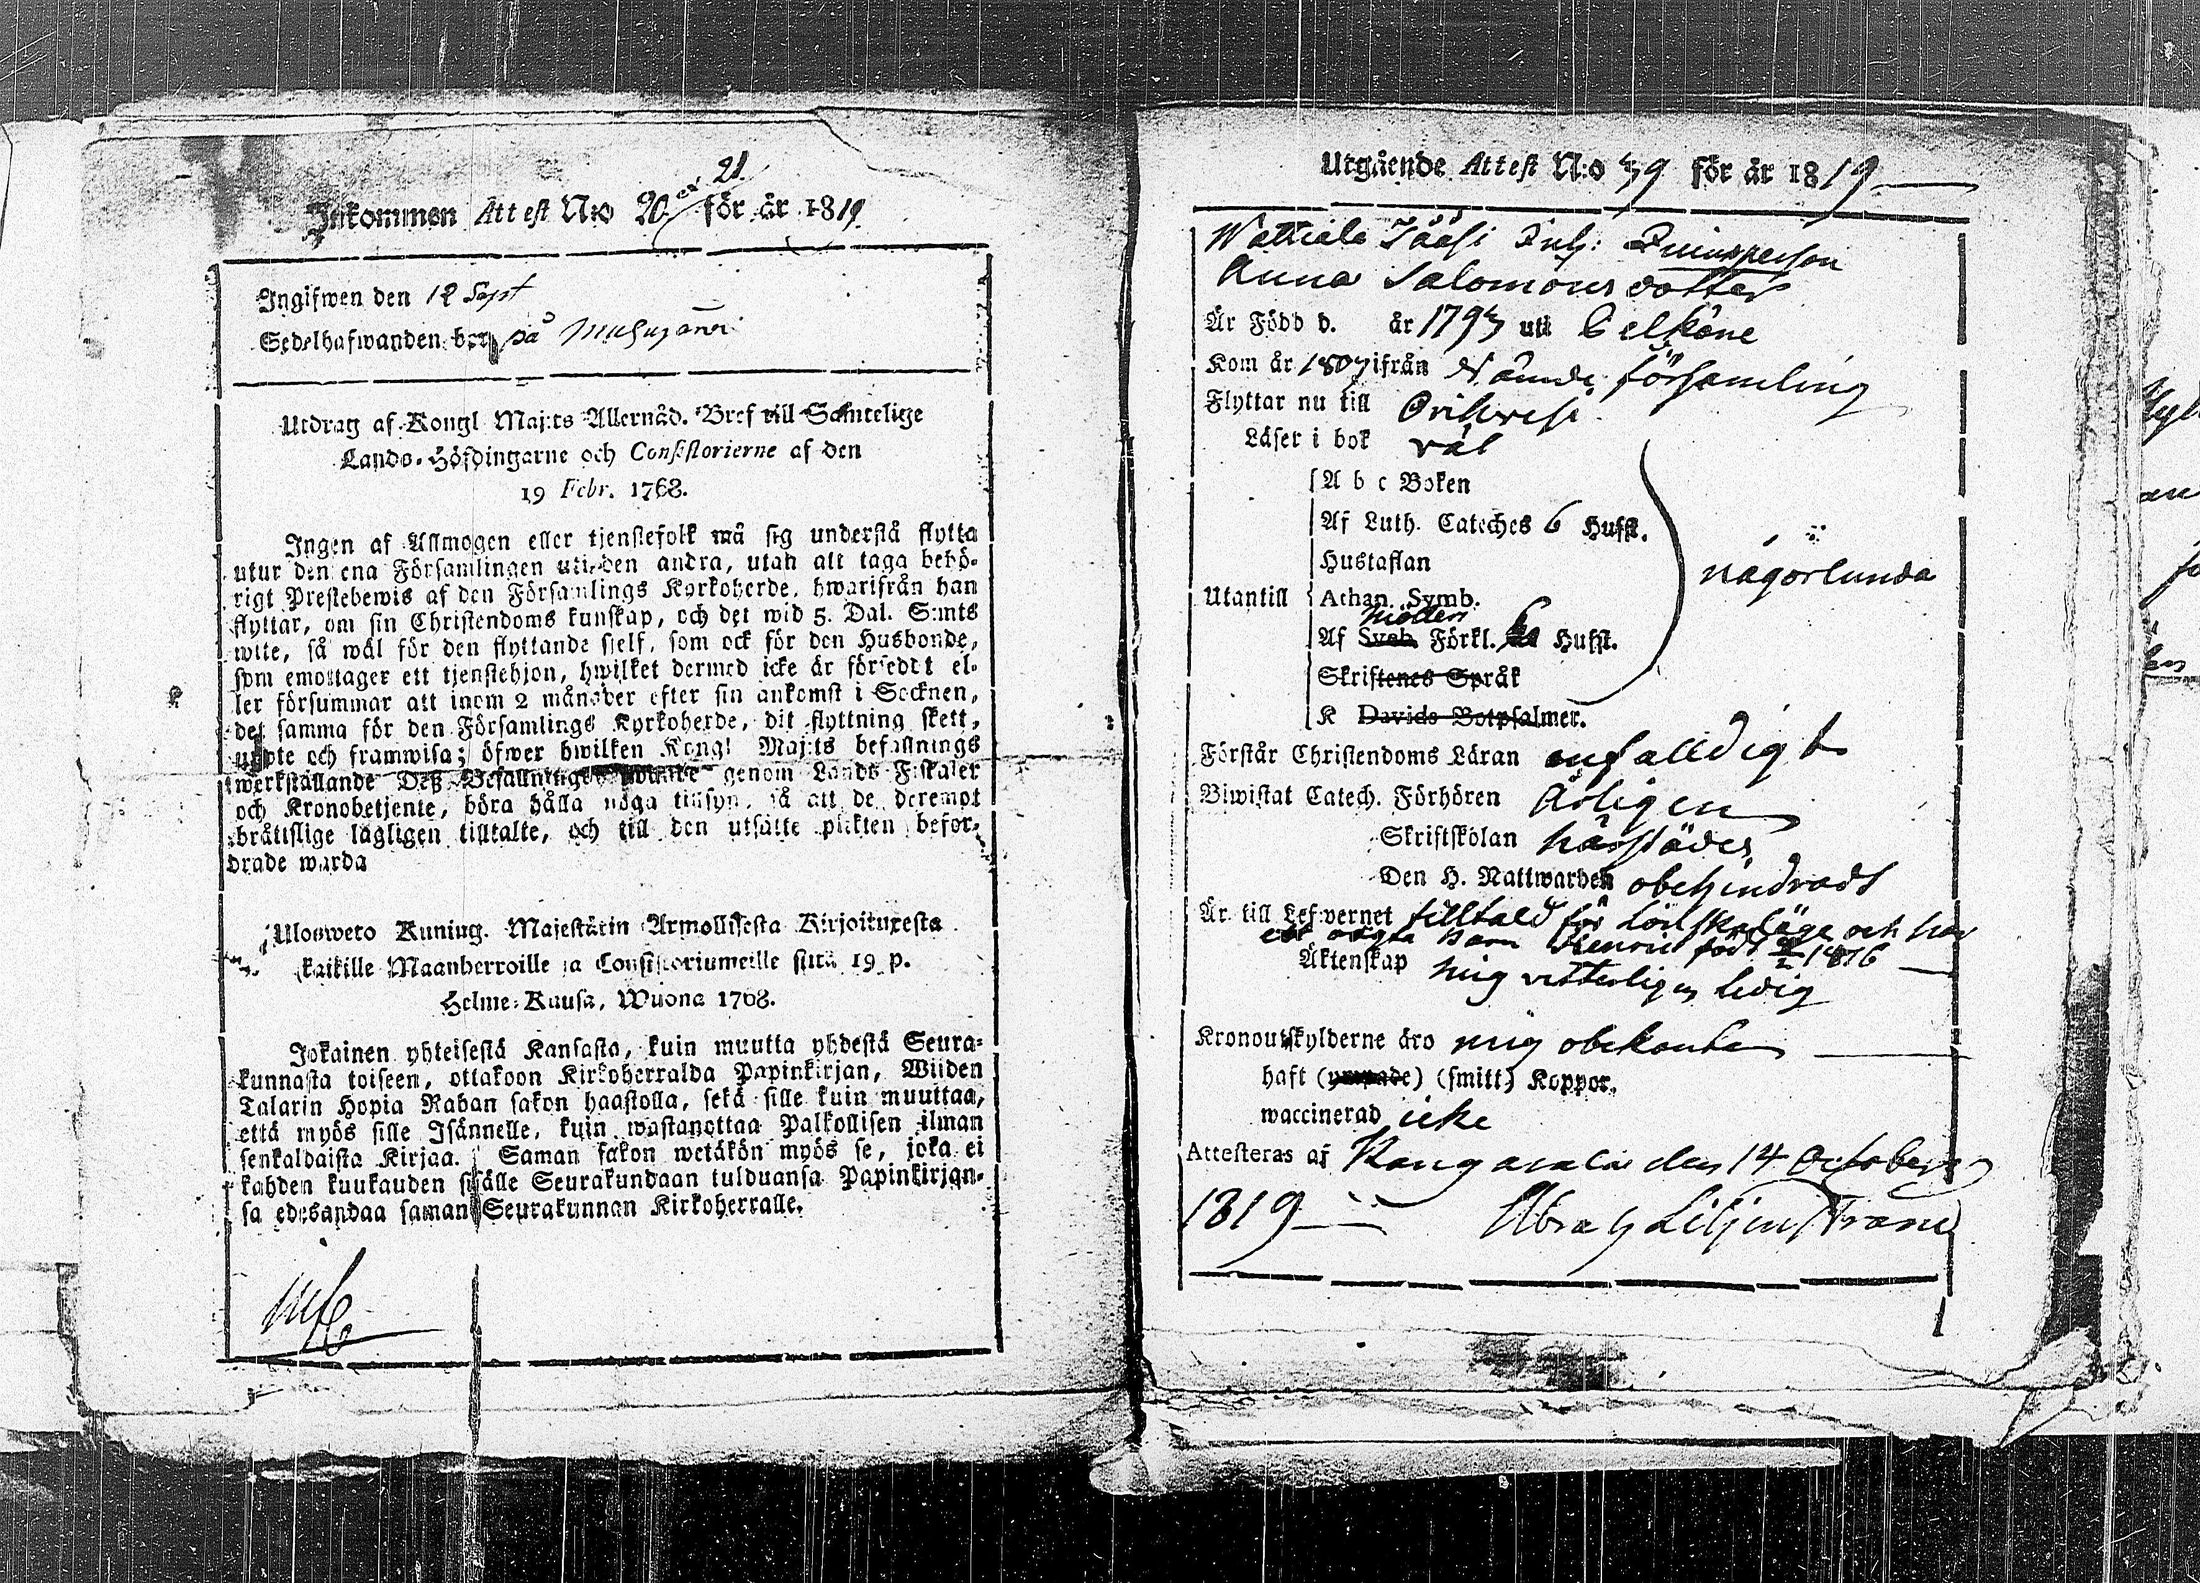 Inkommen Attest N:o 20 et 21 för år 1819
Ingifwen den 12 Sept
Sedelhafwanden bor på
Utdrag af Kongl Maj:ts Allernåd. Bref till Samtelige
Lands-Höfdingarne och Consistorierne af den
19 Febr. 1768.
Ingen af Allmogen eller tjenstefolk må sig understå flytta
utur den ena Församlingen uti den andra, utan att taga behö-
rigt Prestebewis af den Församlings Kyrkoherde, hwarifrån han
flyttar, om sin Christendoms kunskap, och det wid 5. Dal. S:mts
wite, så wäl för den flyttande sjelf, som ock för den Husbonde,
som emottager ett tjenstehjon, hwilket dermed icke är försedt el-
ler försummar att inom 2 månader efter sin ankomst i Socknen,
det samma för den Församlings Kyrkoherde, dit flyttning skett,
upte och framwisa; öfwer hwilken Kongl Maj:ts befallnings
werkställande Deß Befallningshafwande genom Lands-Fiskaler
och Kronobetjente, böra hålla noga tillsyn, så att de deremot
bråttslige lagligen tilltalte, och till den utsatte plikten befor-
drade warda
Ulosweto Kuning. Majestätin Armollisesta Kirjoituxesta
kaikille Maanherroille ja Consistoriumeille siitä 19 p.
Helme-Kuusa, Wuona 1768.
Jokainen yhteisestä Kansasta, kuin muutta yhdestä Seura-
kunnasta toiseen, ottakoon Kirkoherralda Papinkirjan, Wiiden
Talarin Hopia Rahan sakon haastolla, sekä sille kuin muuttaa,
että myös sille Isännelle, kuin wastanottaa Palkollisen ilman
senkaldaista Kirjaa. Saman sakon wetäkön myös se, joka ei
kahden kuukauden sisälle Seurakundaan tulduansa Papinkirjan-
sa edesandaa saman Seurakunnan Kirkoherralle.
Utgående Attest N:o 39 för år 1819
Wattiala Jääsi Inh: Qvinsperson
Anna Salomons dotter
Är Född d. år 1793 uti Pelkäne
Kom år 1807 ifrån Nämde församling
Flyttar nu till Orihvesi
Läser i bok väl
A b c Boken
Af Luth. Cateches 6 Hufst.
Hustaflan
Utantill Athan. Symb.
Af Sveb. Möllers Förkl. 6 Hufst.
Skriftenes Språk
K Davids Botpsalmer.
någorlunda
Förstår Christendoms Läran enfalldigt
Biwistat Catech. Förhören Årligen
Skriftskolan härstädes
Den H. Nattwarden obehindradt
Är till Lefwernet tilltald för lönskaläge och har
ett oägta barn Henric född 1816
Äktenskap mig vitterligen ledig
Kronoutskylderne äro mig obekanta
haft (ympade) (smitt) Koppor.
waccinerad icke
Attesteras af Kangasala den 14 October
1819 Abrah Liljenstrand